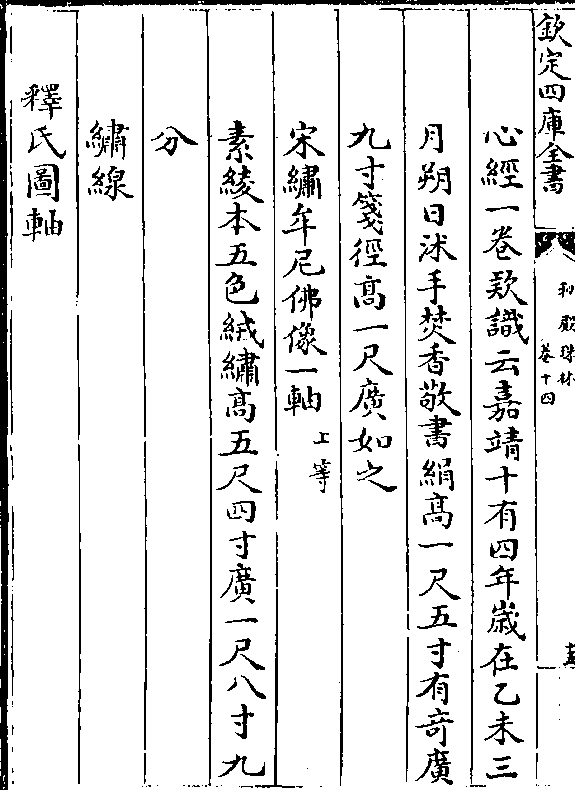 欽定四庫全書
秘殿珠林
卷十四
心經一卷欵識云嘉靖十有四年歲在乙未三
月朔日沐手焚香敬書絹髙一尺五寸有竒廣
九寸箋徑髙一尺廣如之
宋繡牟尼佛像一軸 上等
素綾本五色絨繡髙五尺四寸廣一尺八寸九
分
繡線
釋氏圖軸